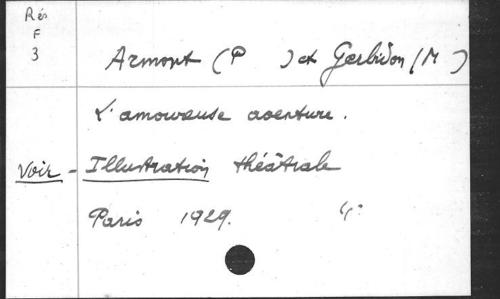 Rés
F
3
Armont (P ) et Gerbidon (M )
L'amoureuse aventure.
Voir - Illustration théâtrale
Paris 1929. 4°